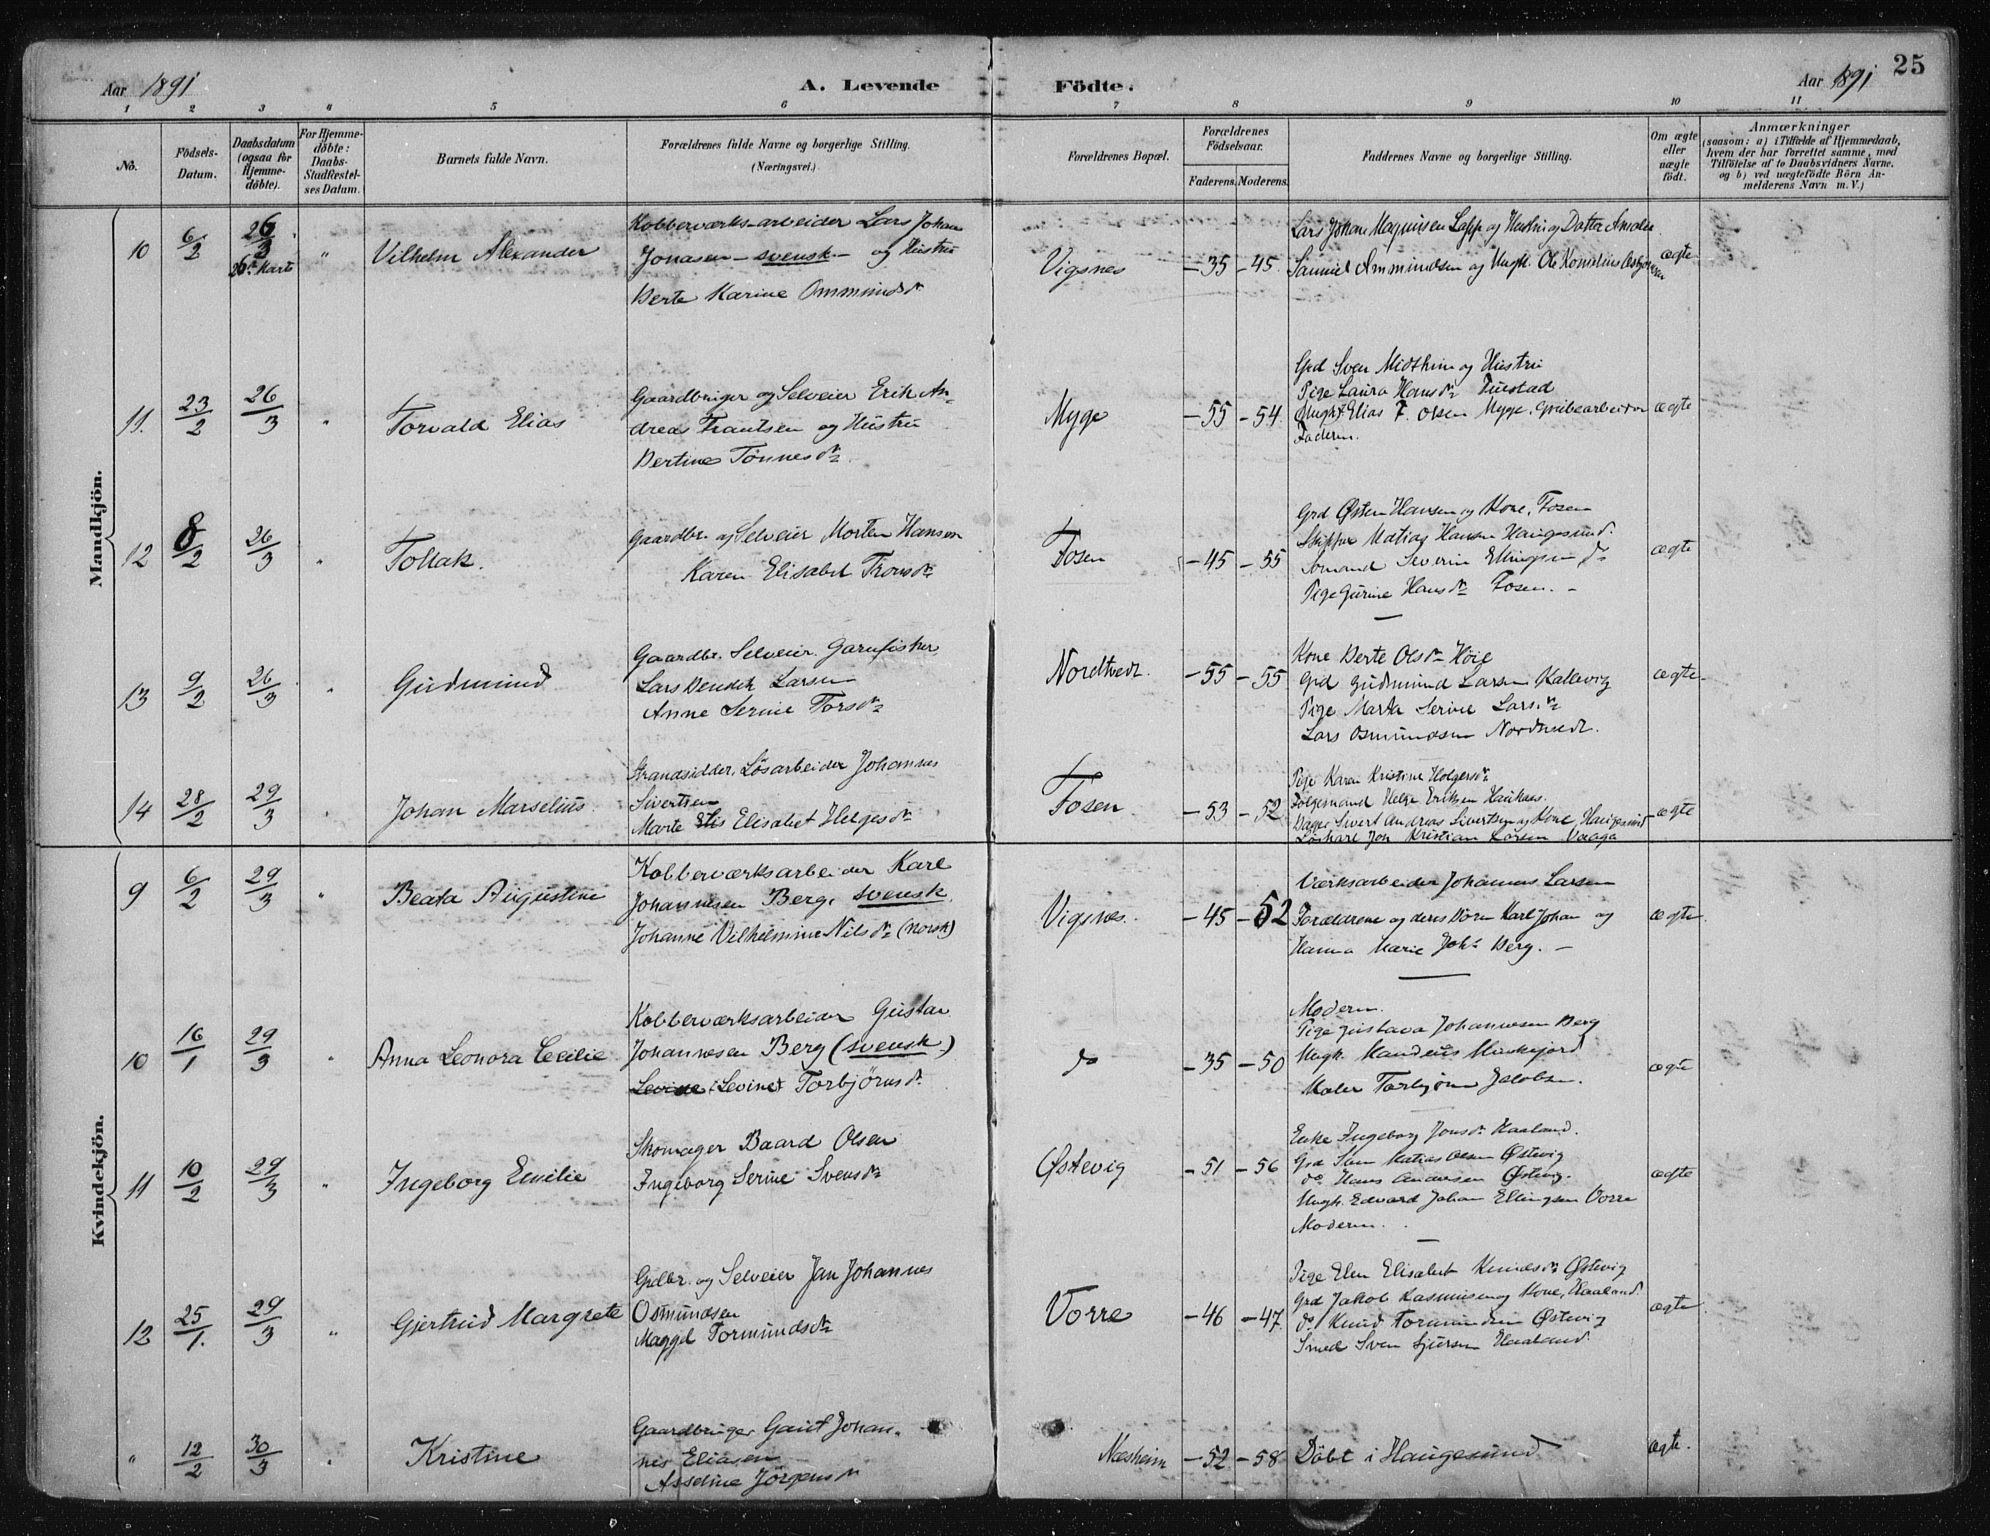 25
Aar 1891
A. Levende Födte.
Aar 1891
1 2 3 " 5 6 7 8 9 10 11
No.
Födsels-Datum.
Daabsdatum (ogsaa for Hjemme-döbte).
For Hjemme-döbte: Daabs-Stadfestel-ses Datum.
Barnets fulde Navn.
Forældrenes fulde Navne og borgerlige Stilling. (Næringsvei.)
Forældrenes Bopæl.
Forældrenes Födselsaar.
Faderens. Moderens.
Faddernes Navne og borgerlige Stilling.
Om ægte eller uægte födt.
Anmærkninger
(saasom: a) i Tilfælde af Hjemmedaab,
hvem der har forrettet samme, med
Tilföielse af to Daabsvidners Navne,
og b) ved uægtefödte Börn An-
melderens Navn m. V.)
Mandkjön.
10 6/2 26/3 26de Marts " Vilhelm Alexander
Kobberværks-arbeider Lars Johan
Jonasen - svensk - og Hustru
Berte Karine Ommundsdr
Vigsnes -35 -45
Lars Johan Magnusen Lapp og Hustru og Datter Amalia
Samuel Ammundsen og Ungk. Ole Kornelius
ægte
11. 23/2 26/3 " Torvald Elias
Gaardbruger og Selveier Erik An-
dreas Trautsen og Hustru
Bertine Tønnesdr.
Myge -55 -54
Grd Sven Midthun og Hustru
Pige Laura Hansdr Tuestad
Ungk. Elias T. Olsen Myge, Grubearbeider
Faderen.
ægte
12 8/2 26/3 " Tollak.
Gaardbr. og Selveier Morten Hansen
Karen Elisabet Tronsdr
Fosen -45 -55
Grd Østen Hansen og Kone, Fosen
Skipper Matias Hansen Haugesund.
Sømand Severin Ellingsen do
Pige Gurine Hansdr Fosen. -
ægte
13 9/2 26/3 " Gudmund
Gaardbr. Selveier. Garnfisker,
Lars Bendik Larsen
Anne Serine Torsdr
Nordtvedt. -55 -55
Kone Berte Olsdr Høie
Grd Gudmund Larsen Kallevig
Pige Marta Serine Larsdr
Lars Osmundsen Nordtvedt.
ægte
14 28/2 29/3 " Johan Marselius
Strandsidder, Løsarbeider Johannes
Sivertsen
Marte Elisabet Helgesdr
Fosen -53 -52
Pige Karen Kristine Holgersdr
Følgemand Helge Eriksen Haukaas.
Sivert Andreas Sivertsen og Kone, Haugesund
Jon Kristian Larsen Vaaga
ægte
Kvindekjön.
9 6/2 29/3 " Beata Augustine
Kobberværksarbeider Karl
Johannesen Berg, svensk.
Johanne Vilhelmine Nilsdr (norsk)
Vigsnes. -45 -52
Værksarbeider Johannes Larsen
Forældrene og deres Børn Karl Johan og
Hanna Marie Johs Berg. -
ægte
10 16/1 29/3 " Anna Leonora Cecilie
Kobberværksarbeider Gustav
Johannesen Berg (svensk.)
Levine Torbjørnsdr.
do -35 -50
Moderen.
Pige Gustava Johannesen Berg
Ungk. Kandeus
Maler Torbjørn Jakobsen.
ægte
11 10/2 29/3 " Ingeborg Emilie
Skomager Baard Olsen
Ingeborg Serine Svensdr
Østevig -51 -56
Enke Ingeborg Jonsdr Haaland.
Grd Matias Olsen Østevig
do Hans Andersen Østevig.
Ungk. Edvard Johan Ellingsen Vorre
Moderen.
ægte
12 25/1. 29/3 " Gjertrud Margrete
Grdbr. og Selveier Jan Johannes
Osmundsen
Maggel Tormundsdr
Vorre -46 -47
Pige Elen Elisabet Knudsdr Østevig
Grd Jakob Rasmusen og Kone, Haaland.
do Knud Tormundsen Østevig
Smed Sven Sjursen Haaland.
ægte
" 12/2 30/3 " Kristine
Gaardbruger Gaut Johan-
nes Eliasen
Asseline Jörgensdr
Næsheim -52 -58 Döbt i Haugesund ægte.